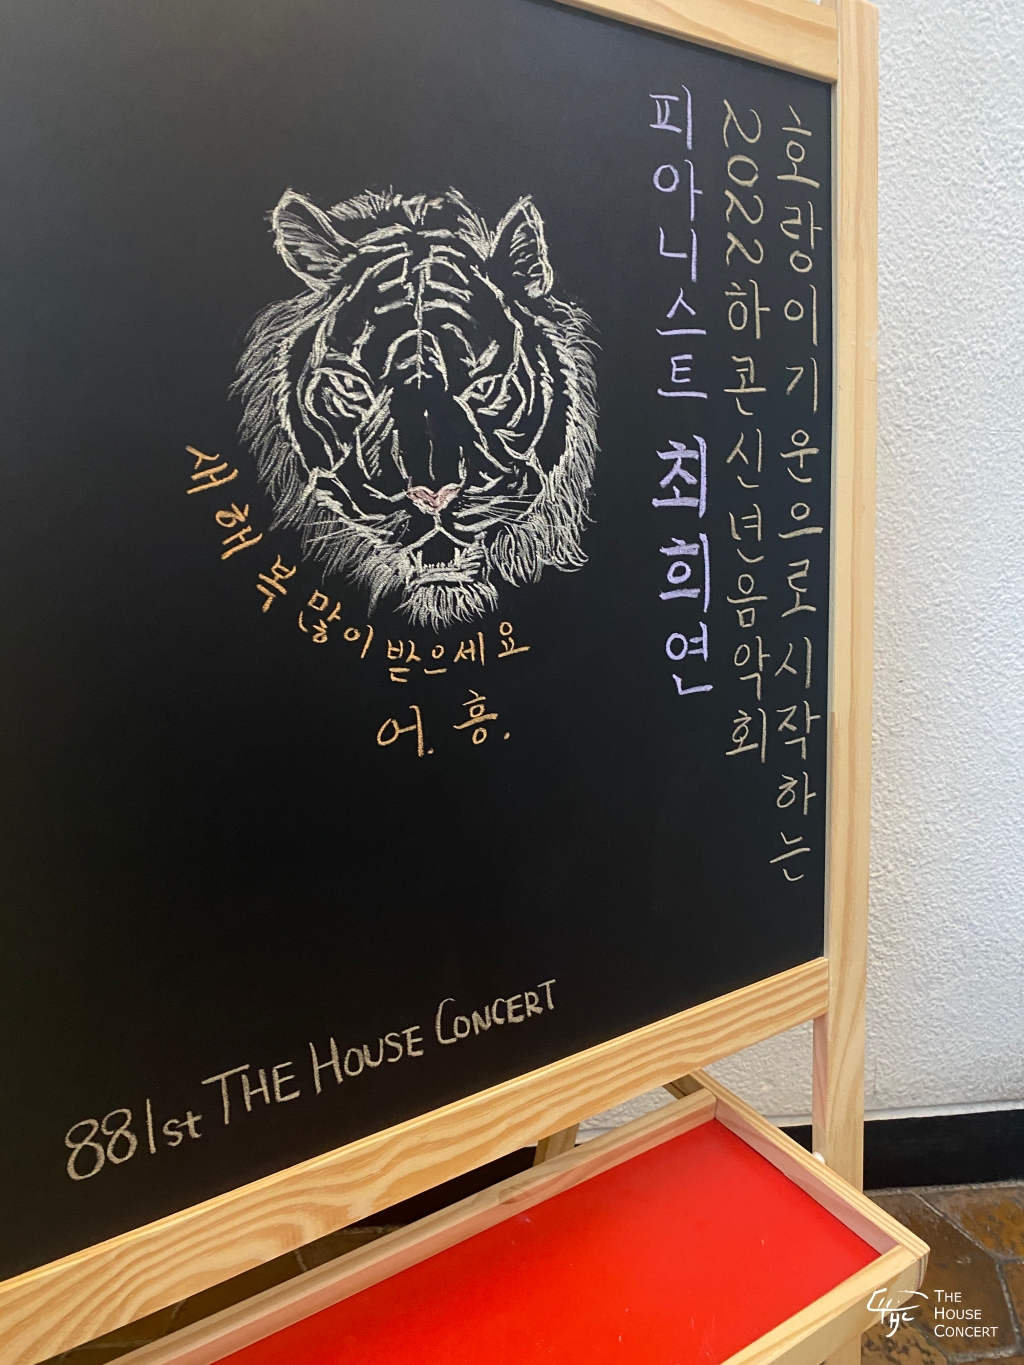 호랑이기운으로시작하는
2022하콘신년음악회
피아니스트 최희연
새해 복 많이 받으세요
어. 흥.
881st THE HOUSE CONCERT
THE
HOUSE
CONCERT